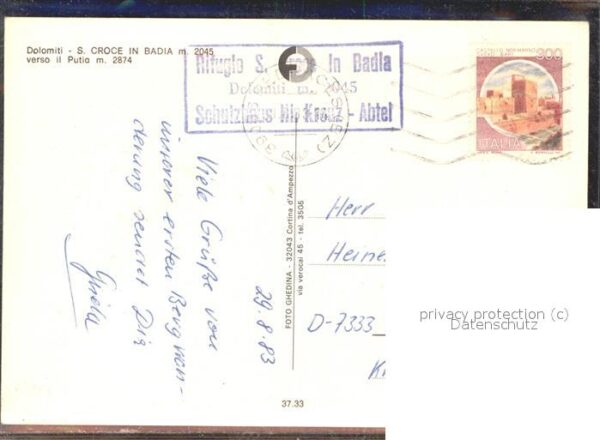 Dolomiti - S. CROCE IN BADIA m. 2045
verso il Putia m. 2874
Rifugio S. Croce in Badia
Dolomiti m. 2045
Schutzhaus Hlg Kreuz - Abtei
300
ITALIA
Viele Grüße von
unserer ersten Bergwan-
derung sendet Dir
29.8.83
FOTO GHEDINA - 32043 Cortina d'Ampezzo
via verocai 45 - tel. 3505
37.33
Herr
Heine
D-7333
privacy protection (c)
Datenschutz